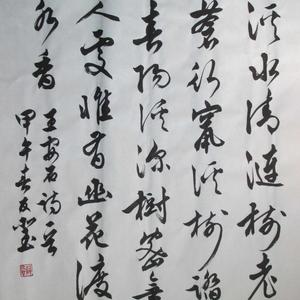 溪水清漣樹老
蒼行穿溪樹踏
春陽溪深樹密無
人處惟有幽花渡
水香
王安石詩
甲午春